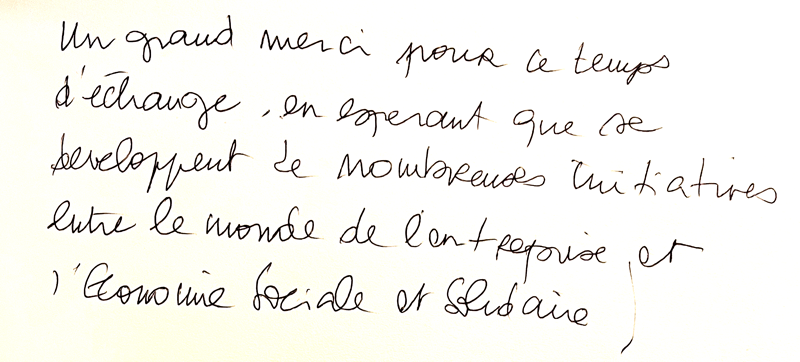 Un grand merci pour ce temps
d'échange, en esperant que se
developpent de nombreuses initiatives
entre le monde de l'entreprise et
l'Economie Sociale et Solidaire